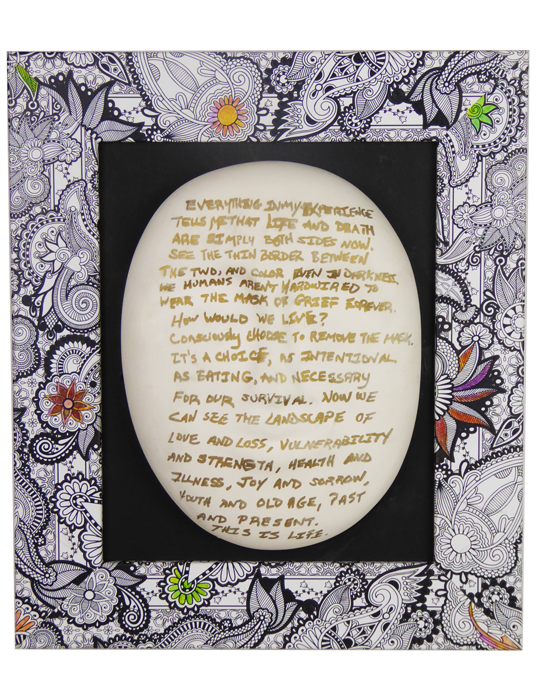 EVERYTHING IN MY EXPERIENCE
TELLS ME THAT LIFE AND DEATH
ARE SIMPLY BOTH SIDES NOW.
SEE THE THIN BORDER BETWEEN
THE TWO, AND COLOR EVEN IN DARKNESS.
WE HUMANS AREN'T HARDWIRED TO
WEAR THE MASK OF GRIEF FOREVER.
HOW WOULD WE LIVE?
CONSCIOUSLY CHOOSE TO REMOVE THE MASK.
IT'S A CHOICE, AS INTENTIONAL
AS EATING, AND NECESSARY
FOR OUR SURVIVAL. NOW WE
CAN SEE THE LANDSCAPE OF
LOVE AND LOSS, VULNERABILITY
AND STRENGTH, HEALTH AND
ILLNESS, JOY AND SORROW,
YOUTH AND OLD AGE, PAST
AND PRESENT.
THIS IS LIFE.